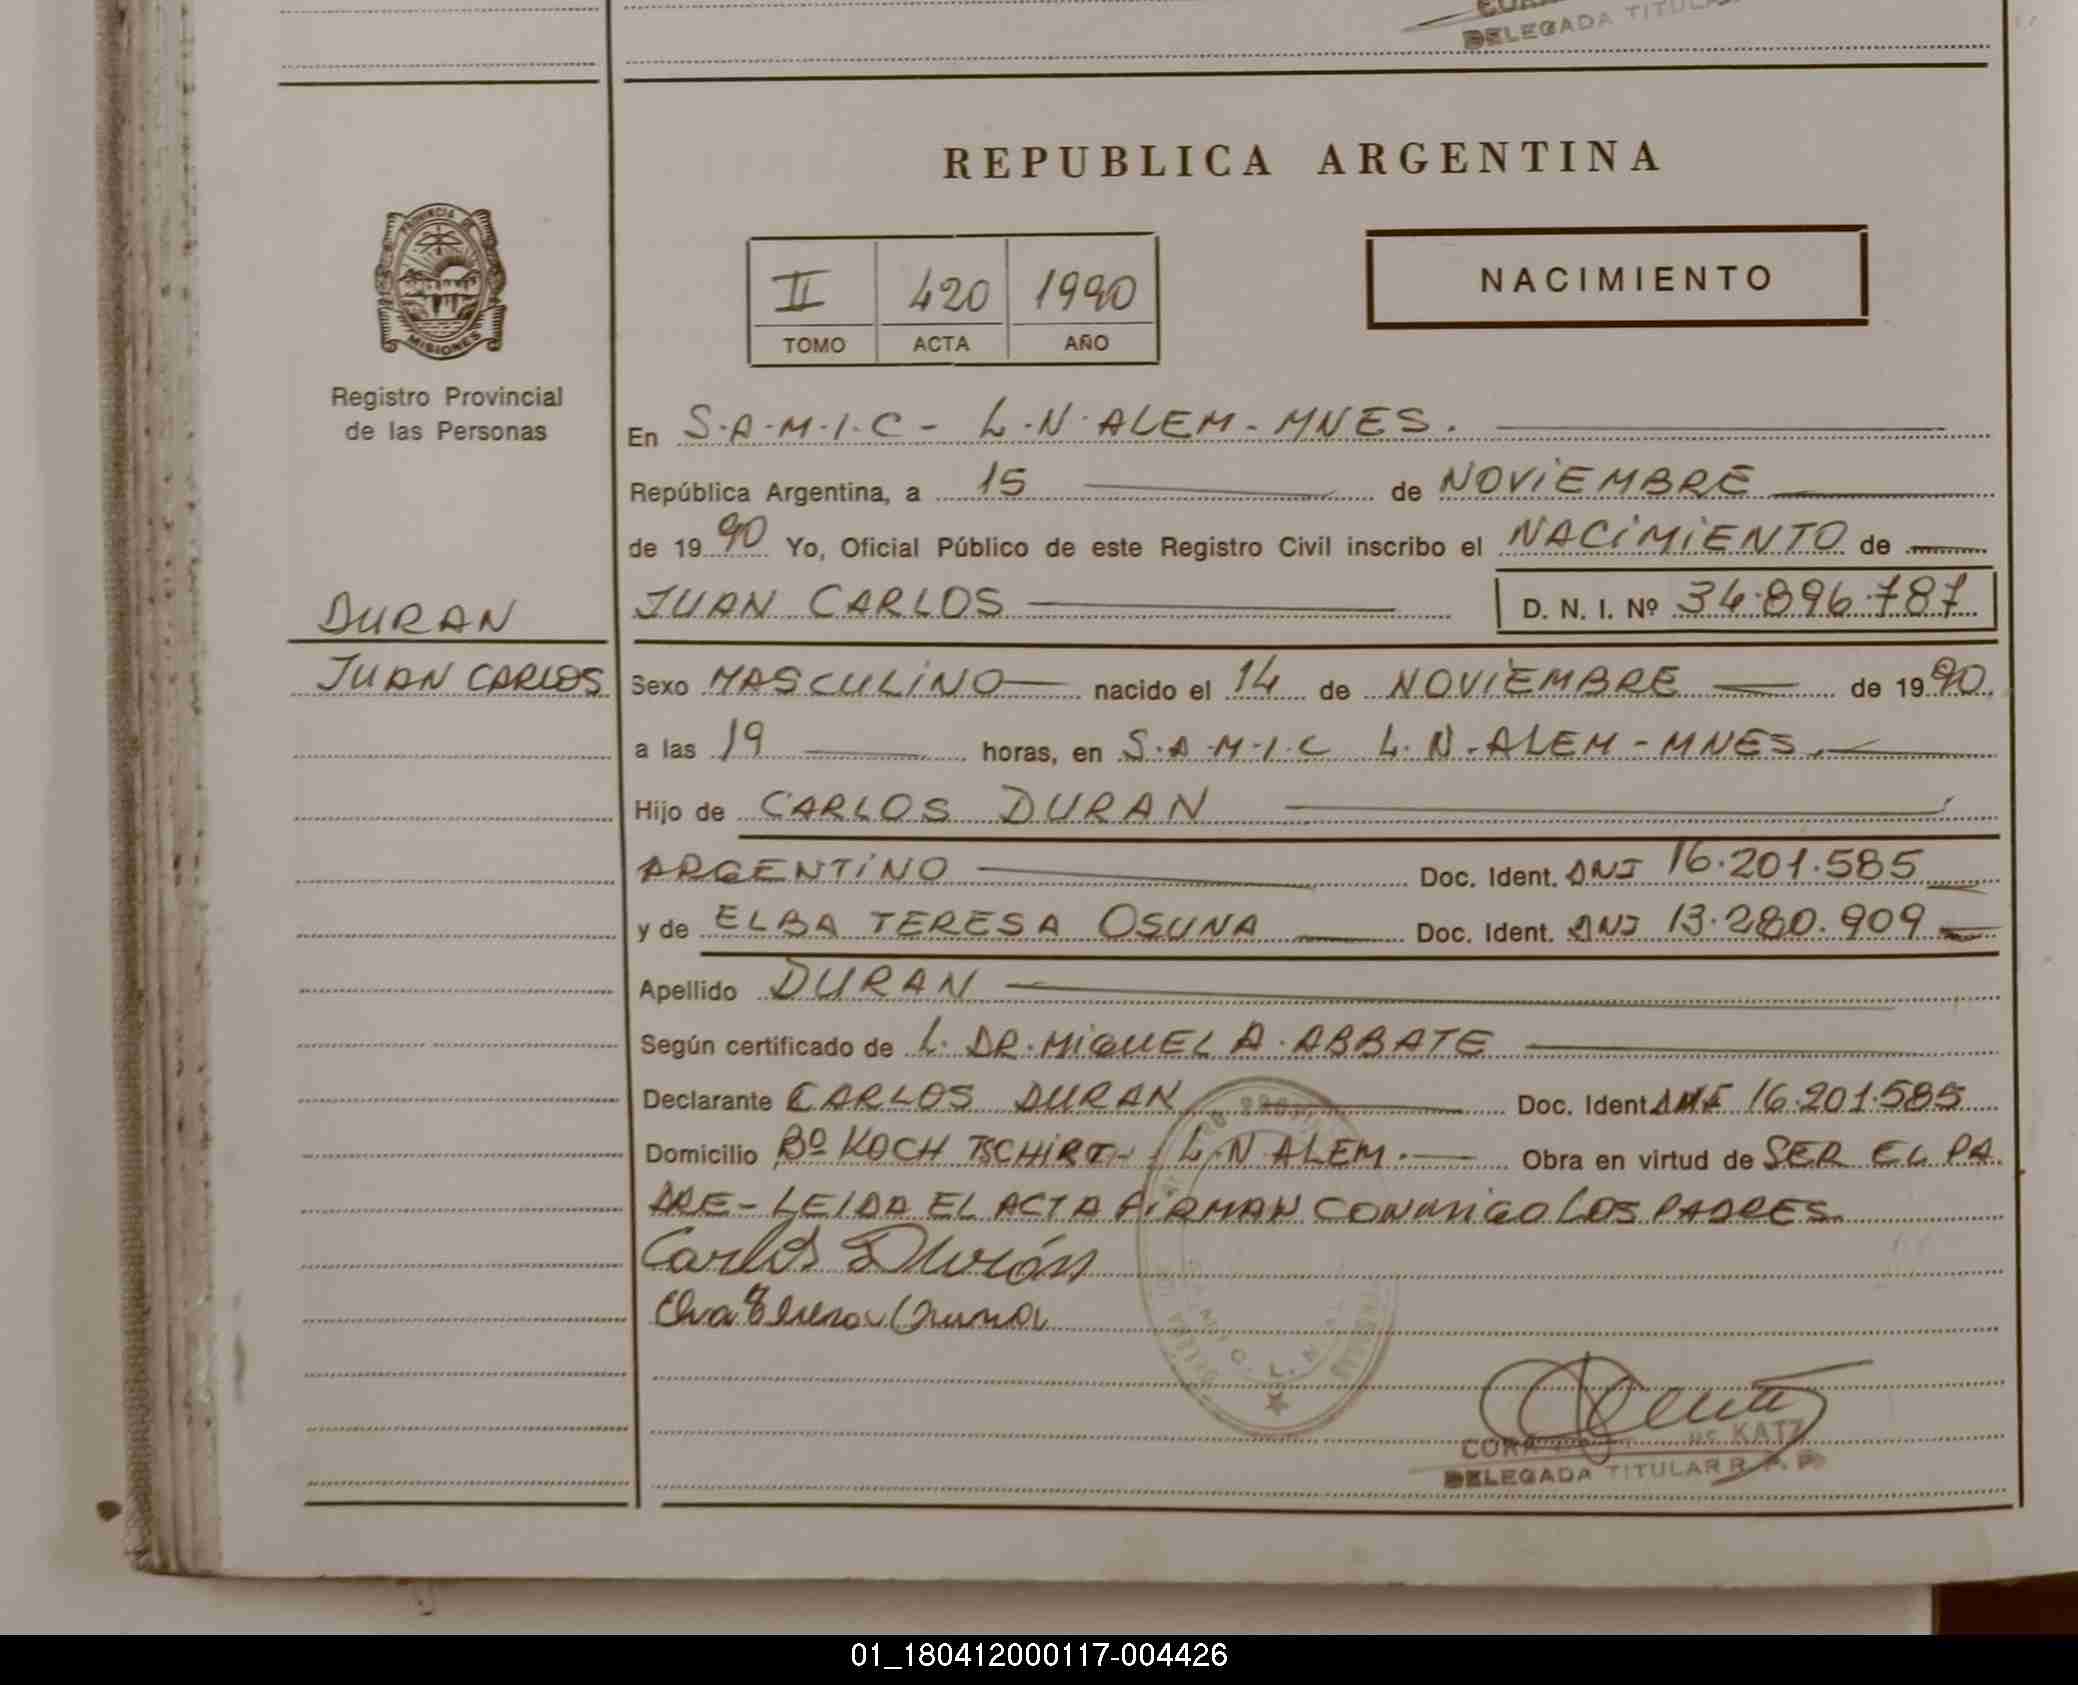 DELEGADA TITULAR
REPUBLICA ARGENTINA
PROVINCIA DE
MISIONES
II 420 1990
TOMO ACTA AÑO
NACIMIENTO
Registro Provincial
de las Personas
En S.A.M.I.C - L.N.ALEM - MNES.
República Argentina, a 15 de NOViEMBRE
de 1990 Yo, Oficial Público de este Registro Civil inscribo el NACiMiENTO de
DURAN
JUAN CARLOS D. N. I. Nº 34.896.787
JUAN CARLOS
Sexo MASCULiNO nacido el 14 de NOViEMBRE de 1990
a las 19 horas, en S.A.M.I.C L.N.ALEM - MNES.
Hijo de CARLOS DURAN
ARGENTiNO Doc. Ident. DNI 16.201.585
y de ELBA TERESA OSUNA Doc. Ident. DNI 13.280.909
Apellido DURAN
Según certificado de L. DR. MiGUEL A. ABBATE
Declarante CARLOS DURAN Doc. Ident. DNI 16.201.585
Domicilio Bº KOCH TSCHIRT - L.N.ALEM. Obra en virtud de SER EL PA
DRE - LEIDA EL ACTA FiRMAN CONMIGO LOS PADRES
Carlos Durán
Elva Teresa Osuna
KATZ
DELEGADA TITULAR R. P. P.
01_180412000117-004426